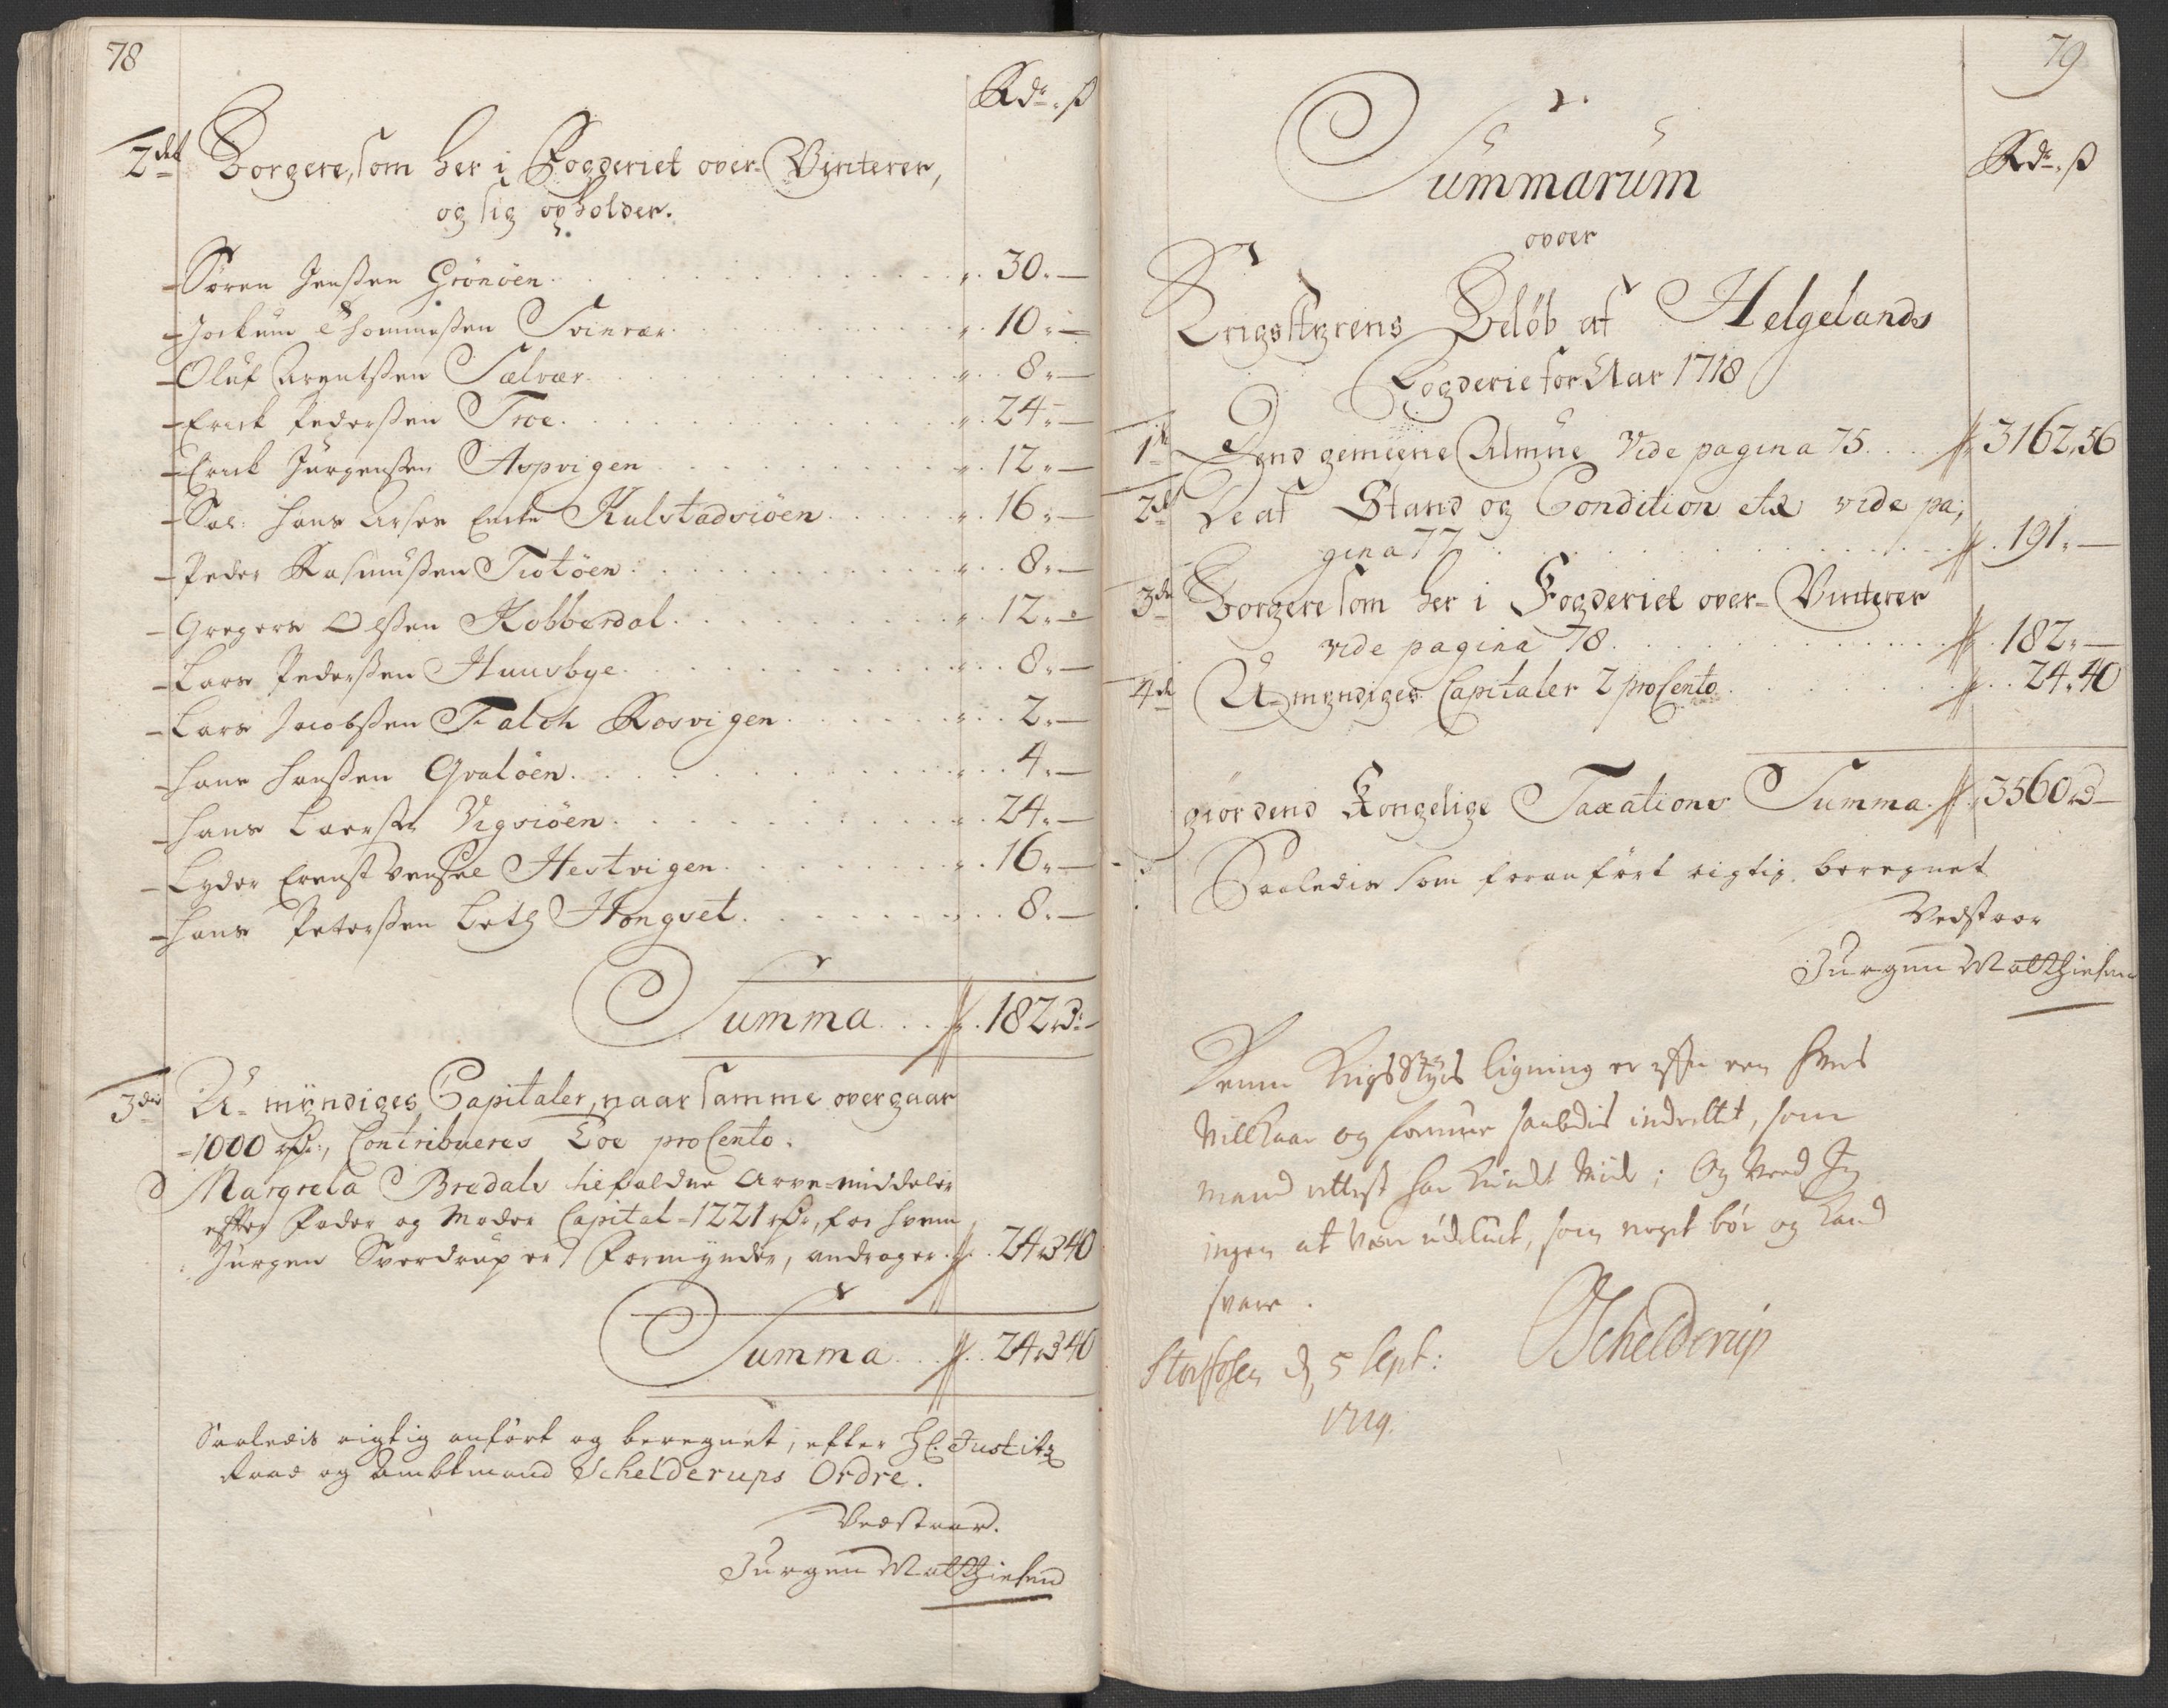 78
Rdr. ß
2det Borgere, som her i Fogderiet over-Vinterer,
og sig opholder.
Søren Jenßen Grönöen 30.—
Jockum Thommeßen Svinvær 10.—
Oluf Arentßen Sælvær 8.—
Erick Pederßen Troe 24.—
Erick Jürgenßen Aspvigen 12.—
Sal: Hans Enke Kulstadsiöen 16.—
Peder Rasmußen Tiotöen 8.—
Gregers Olßen Kobberdal 12.—
Lars Pederßen Huusbye 8.—
Lars Jacobßen Falch Rosvigen 2.—
Hans Hanßen Qvalöen 4.—
Hans Larßen Vigsiöen 24.—
Lyder Ernst Hestvigen 16.—
Hans Peterßen Hongset 8.—
Summa 182 rd:—
3die U-myndiges Capitaler, naar samme overgaar
1000 rdr, Contribueres Toe proCento.
Margreta Bredals tilfaldne Arve-middeler
efter Fader og Moder Capital 1221 rdr, for hvem
Jürgen Sverdrup er Formynder, andrager 24 rd 40
Summa 24 rd 40
Saaledis rigtig anført og beregnet, efter Hr. Justitz
Raad og Ambtmand Schelderups Ordre.
Vedstaar.
Jürgen Matthiesen
79
Summarum
Rdr. ß
over
Krigsstyrens Beløb af Helgelands
Fogderie for Aar 1718
1t Dend gemeene Almue Vide pagina 75 3162.56
2det De af Stand og Condition etc vide pa;
gina 77 191.—
3de Borgere som her i Fogderiet over-Vinterer
vide pagina 78 182.—
4de U-myndiges Capitaler 2 proCento 24.40
giør dend Kongelige Taxations Summa 3560 rd—
Saaledis som foranført rigtig beregnet
Vedstaar
Jürgen Matthiesen
Denne Krigs Styrs ligning er efter een hvers
Vilkaar og formue saaledis indrettet, som
mand rettest har kundet Vide; Og Veed Jeg
ingen at Være udeluct, som noget bør og kand
svare.
Storfosen d, 5 Sept:
Schelderup
1719.